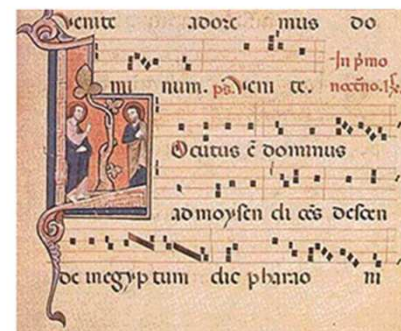 Venite adore mus do
mi num. ps. Veni te. In p̄mo
nocc̄no.
Ocutus ē dominus
ad moysen di cēs descen
de in egyp tum dic pharao ni